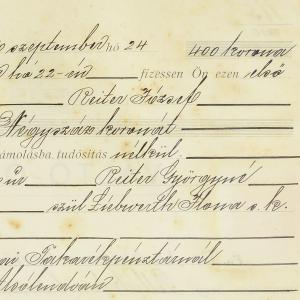 szeptember hó 24 400 korona
hó 22-én fizessen Ön ezen első
Reiter József
Négyszáz koronát
számolásba tudósitás nélkül.
Reiter Györgyné
szül Liebwerth Ilona s. k.
Takarékpénztárnál
Alsólendván